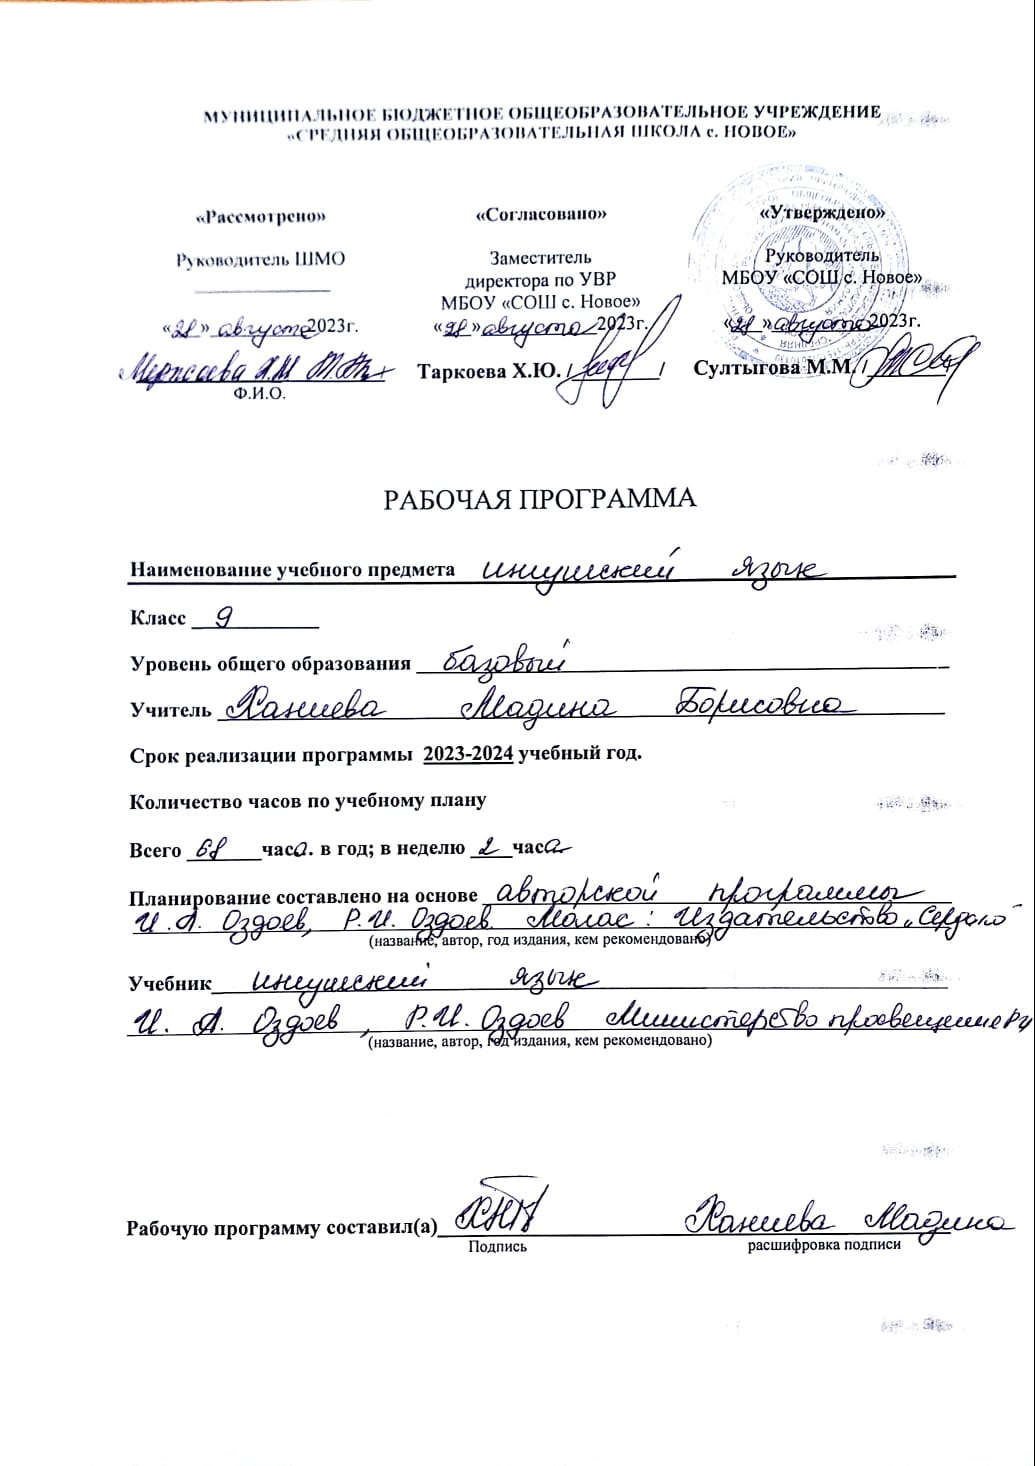 МУНИЦИПАЛЬНОЕ БЮДЖЕТНОЕ ОБЩЕОБРАЗОВАТЕЛЬНОЕ УЧРЕЖДЕНИЕ
«СРЕДНЯЯ ОБЩЕОБРАЗОВАТЕЛЬНАЯ ШКОЛА с. НОВОЕ»
«Рассмотрено» «Согласовано» «Утверждено»
Руководитель ШМО Заместитель Руководитель
директора по УВР МБОУ «СОШ с. Новое»
МБОУ «СОШ с. Новое»
«28» августа 2023г. «28» августа 2023г. «28» августа 2023г.
Таркоева Х.Ю. / / Султыгова М.М. /
Ф.И.О.
РАБОЧАЯ ПРОГРАММА
Наименование учебного предмета ингушский язык
Класс 9
Уровень общего образования базовый
Учитель Ханиева Мадина Борисовна
Срок реализации программы 2023-2024 учебный год.
Количество часов по учебному плану
Всего 68 часа. в год; в неделю 2 часа
Планирование составлено на основе авторской программы
И.А. Оздоев, Р.И. Оздоев. : Издательство „Сердало"
(название, автор, год издания, кем рекомендовано)
Учебник ингушский язык
И. А. Оздоев, Р.И. Оздоев Министерство просвещение РИ
(название, автор, год издания, кем рекомендовано)
Рабочую программу составил(а) Ханиева Мадина
Подпись расшифровка подписи